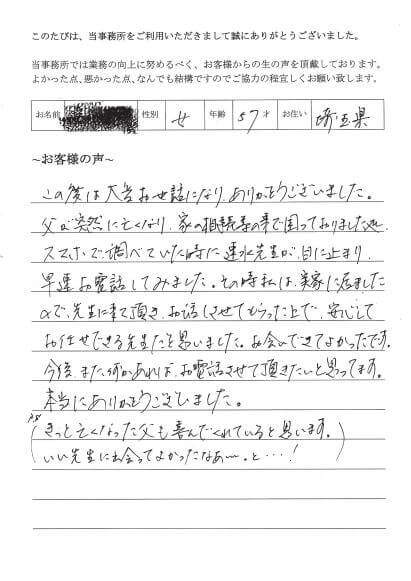 このたびは、当事務所をご利用いただきまして誠にありがとうございました。
当事務所では業務の向上に努めるべく、お客様からの生の声を頂戴しております。
よかった点、悪かった点、なんでも結構ですのでご協力の程宜しくお願い致します。
お名前 性別 女 年齢 57才 お住い 埼玉県
~お客様の声~
この度は大変お世話になり、ありがとうございました。
父が突然に亡くなり、家の相続等の事で困っておりました処、
スマホで調べていた時に速水先生が、目に止まり、
早速お電話してみました。その時私は、実家に居ました
ので、先生に来て頂き、お話しさせてもらった上で、安心して
お任せできる先生だと思いました。お会いできてよかったです。
今後、また、何かあれば、お電話させて頂きたいと思ってます。
本当にありがとうございました。
(きっと亡くなった父も喜んでくれていると思います。
いい先生に出会ってよかったなあ〜。と…!)